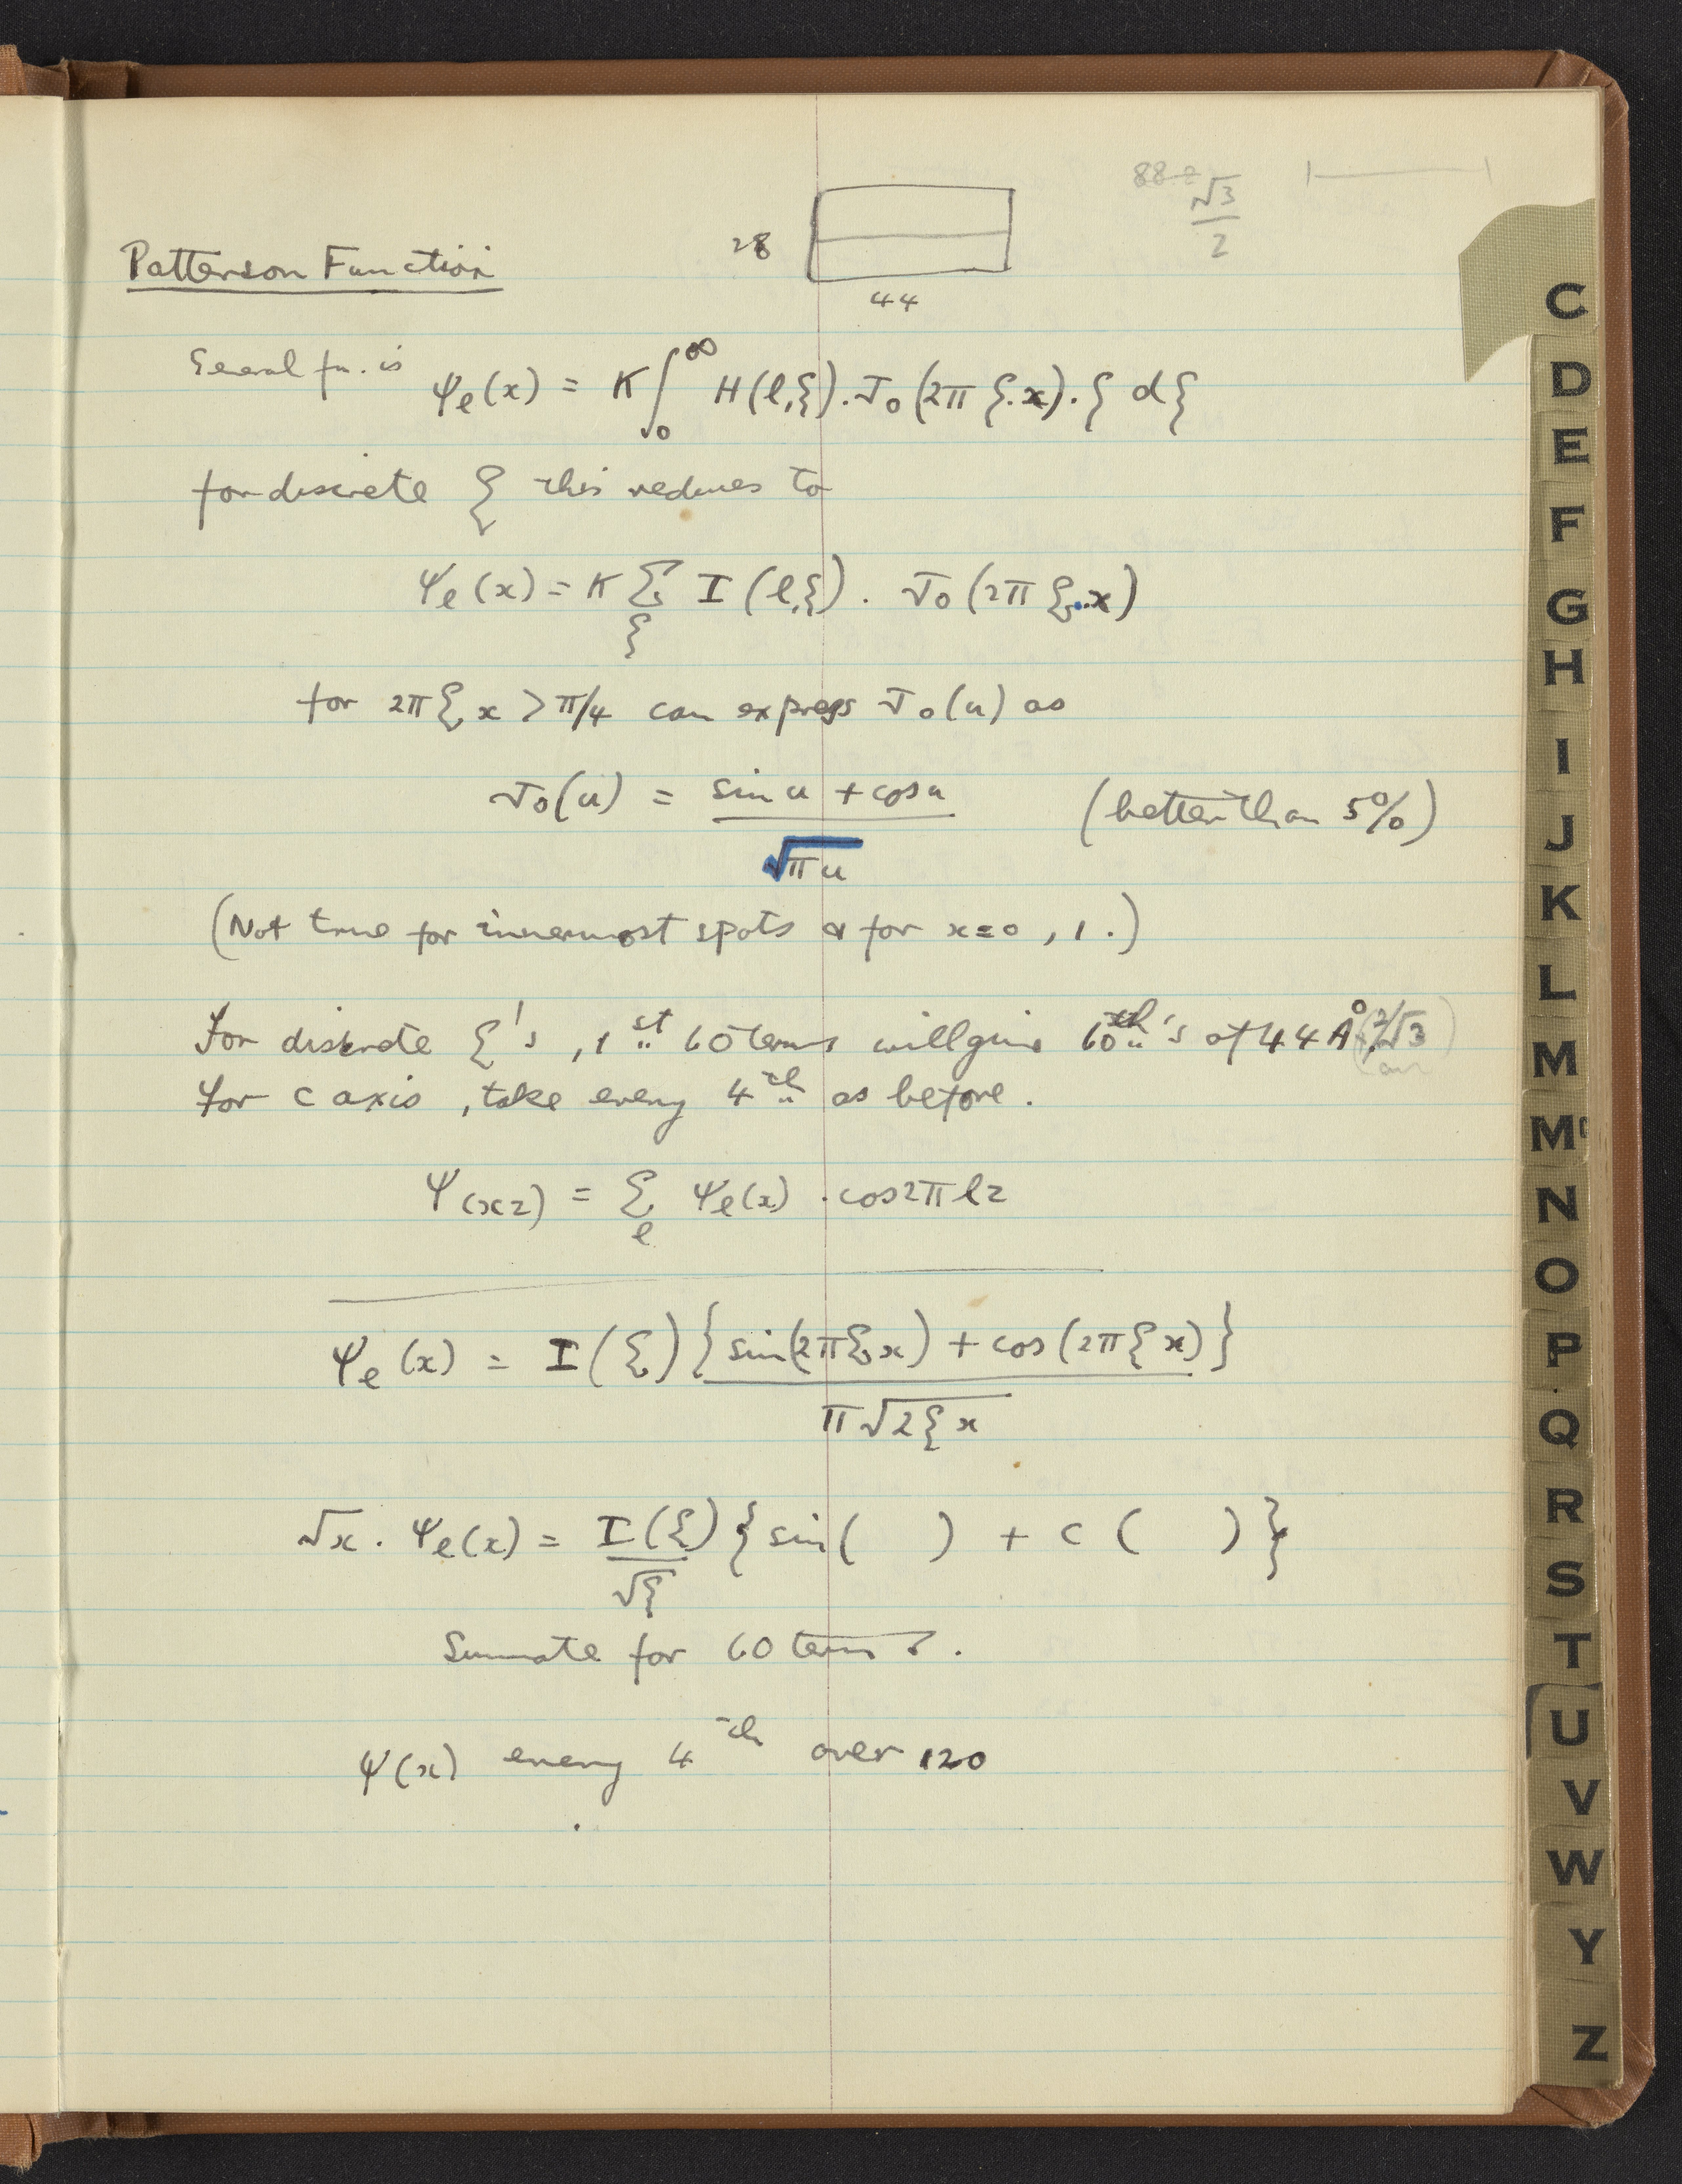 88-2
√3
2
28
Patterson Function
44
General fn. is ψℓ(x) = K ∫₀^∞ H(ℓ,ξ). J₀(2π ξ.x). ξ dξ
for discrete ξ this reduces to
ψℓ(x) = K Σ I(ℓ,ξ). J₀(2π ξ.x)
ξ
for 2πξx > π/4 can express J₀(u) as
J₀(u) = sin u + cos u (better than 5%)
√πu
(Not true for innermost spots or for x=0, 1.)
For discrete ξ's, 1st 60 terms will give 60th's of 44Å (2/√3)
For c axis, take every 4th as before.
Ψ(xz) = Σ ψℓ(x) . cos2πℓz
ℓ
ψℓ(x) = I(ξ) {sin(2πξx) + cos(2πξx)}
π√2ξx
√x. ψℓ(x) = I(ξ) {sin( ) + c ( )}
√ξ
Summate for 60 terms.
ψ(x) every 4th over 120
C
D
E
F
G
H
I
J
K
L
M
Mc
N
O
P
Q
R
S
T
U
V
W
Y
Z